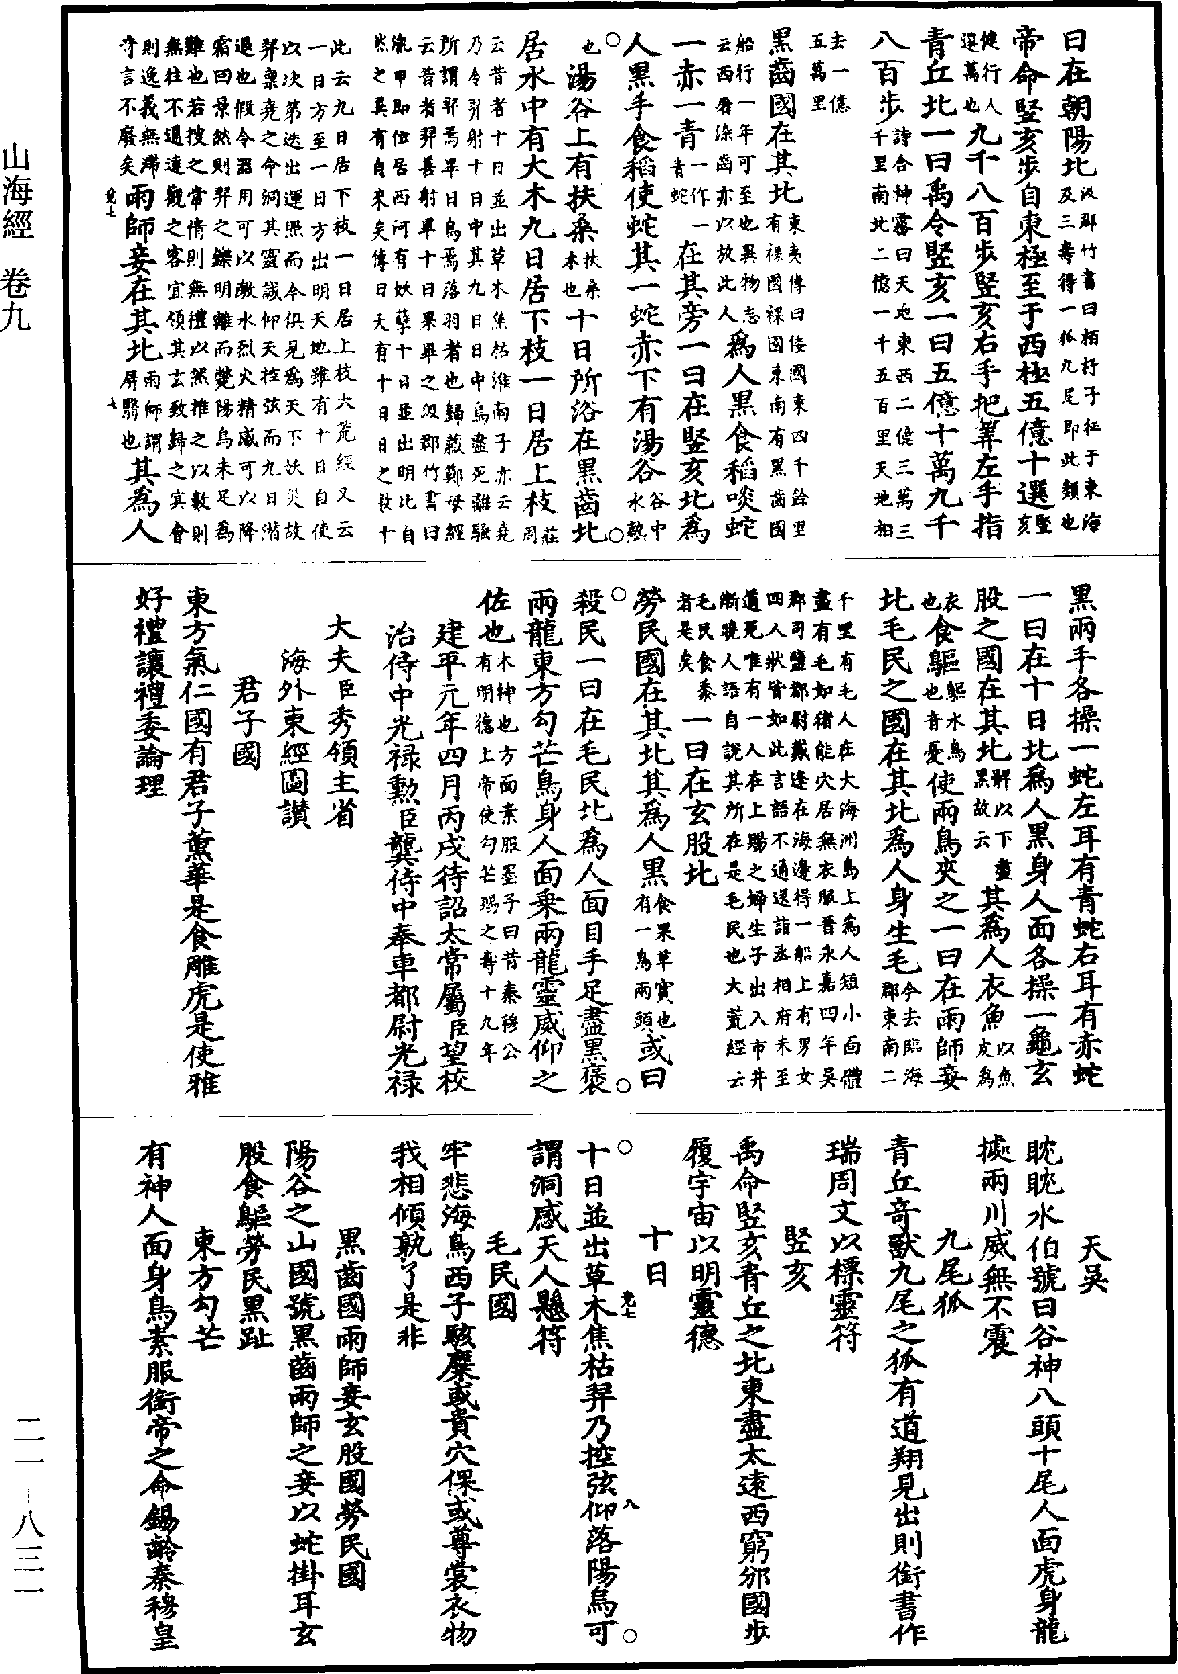 山海經 卷九
二一—八三一
曰在朝陽北汲郡竹書曰柏杼子征于東海及三壽得一狐九尾即此類也
帝命豎亥步自東極至于西極五億十選豎亥
健行人選萬也九千八百步豎亥右手把筭左手指
青丘北一曰禹令豎亥一曰五億十萬九千
八百步詩含神霧曰天地東西二億三萬三千里南北二億一千五百里天地相
去一億五萬里
黑齒國在其北東夷傳曰倭國東四千餘里有裸國裸國東南有黑齒國
船行一年可至也異物志云西屠染齒亦以放此人為人黑食稻啖蛇
一赤一青一作青蛇一在其旁一曰在豎亥北為
人黑手食稻使蛇其一蛇赤下有湯谷谷中水熱
也湯谷上有扶桑扶桑木也十日所浴在黑齒北
居水中有大木九日居下枝一日居上枝莊周
云昔者十日並出草木焦枯淮南子亦云堯乃令羿射十日中其九日日中烏盡死離騷
所謂羿焉畢日烏焉落羽者也歸藏鄭母經云昔者羿善射畢十日果畢之汲郡竹書曰
胤甲即位居西河有妖孽十日並出明此自然之異有自來矣傳曰天有十日日之數十
此云九日居下枝一日居上枝大荒經又云一日方至一日方出明天地雖有十日自使
以次第迭出運照而今俱見為天下妖災故羿稟堯之令洞其靈誠仰天控弦而九日潛
退也假令器用可以激水烈火精感可以降霜回景然則羿之鑠明離而斃陽烏未足為
難也若搜之常情則無禮以然推之以數則無往不通達觀之客宜領其玄致歸之冥會
則逸義無滯奇言不廢矣雨師妾在其北雨師謂屏翳也其為人
兌七
七
黑兩手各操一蛇左耳有青蛇右耳有赤蛇
一曰在十日北為人黑身人面各操一龜玄
股之國在其北髀以下盡黑故云其為人衣魚以魚皮為
衣也食䳼䳼水鳥也音憂使兩鳥夾之一曰在雨師妾
北毛民之國在其北為人身生毛今去臨海郡東南二
千里有毛人在大海洲島上為人短小面體盡有毛如豬能穴居無衣服晉永嘉四年吳
郡司鹽都尉戴逢在海邊得一船上有男女四人狀皆如此言語不通送詣丞相府未至
道死唯有一人在上賜之婦生子出入市井漸曉人語自說其所在是毛民也大荒經云
毛民食黍者是矣一曰在玄股北
勞民國在其北其為人黑食果草實也有一鳥兩頭或曰
殺民一曰在毛民北為人面目手足盡黑褒
兩龍東方勾芒鳥身人面乘兩龍靈威仰之
佐也木神也方面素服墨子曰昔秦穆公有明德上帝使勾芒賜之壽十九年
建平元年四月丙戌待詔太常屬臣望校
治侍中光祿勳臣龔侍中奉車都尉光祿
大夫臣秀領主省
海外東經圖讚
君子國
東方氣仁國有君子薰華是食雕虎是使雅
好禮讓禮委論理
天吳
眈眈水伯號曰谷神八頭十尾人面虎身龍
據兩川威無不震
九尾狐
青丘奇獸九尾之狐有道翔見出則銜書作
瑞周文以標靈符
豎亥
禹命豎亥青丘之北東盡太遠西窮邠國步
履宇宙以明靈德
十日
十日並出草木焦枯羿乃控弦仰落陽烏可
謂洞感天人懸符
兌七
八
毛民國
牢悲海鳥西子駭麋或貴穴倮或尊裳衣物
我相傾孰了是非
黑齒國雨師妾玄股國勞民國
陽谷之山國號黑齒雨師之妾以蛇掛耳玄
股食䳼勞民黑趾
東方勾芒
有神人面身鳥素服銜帝之命錫齡秦穆皇